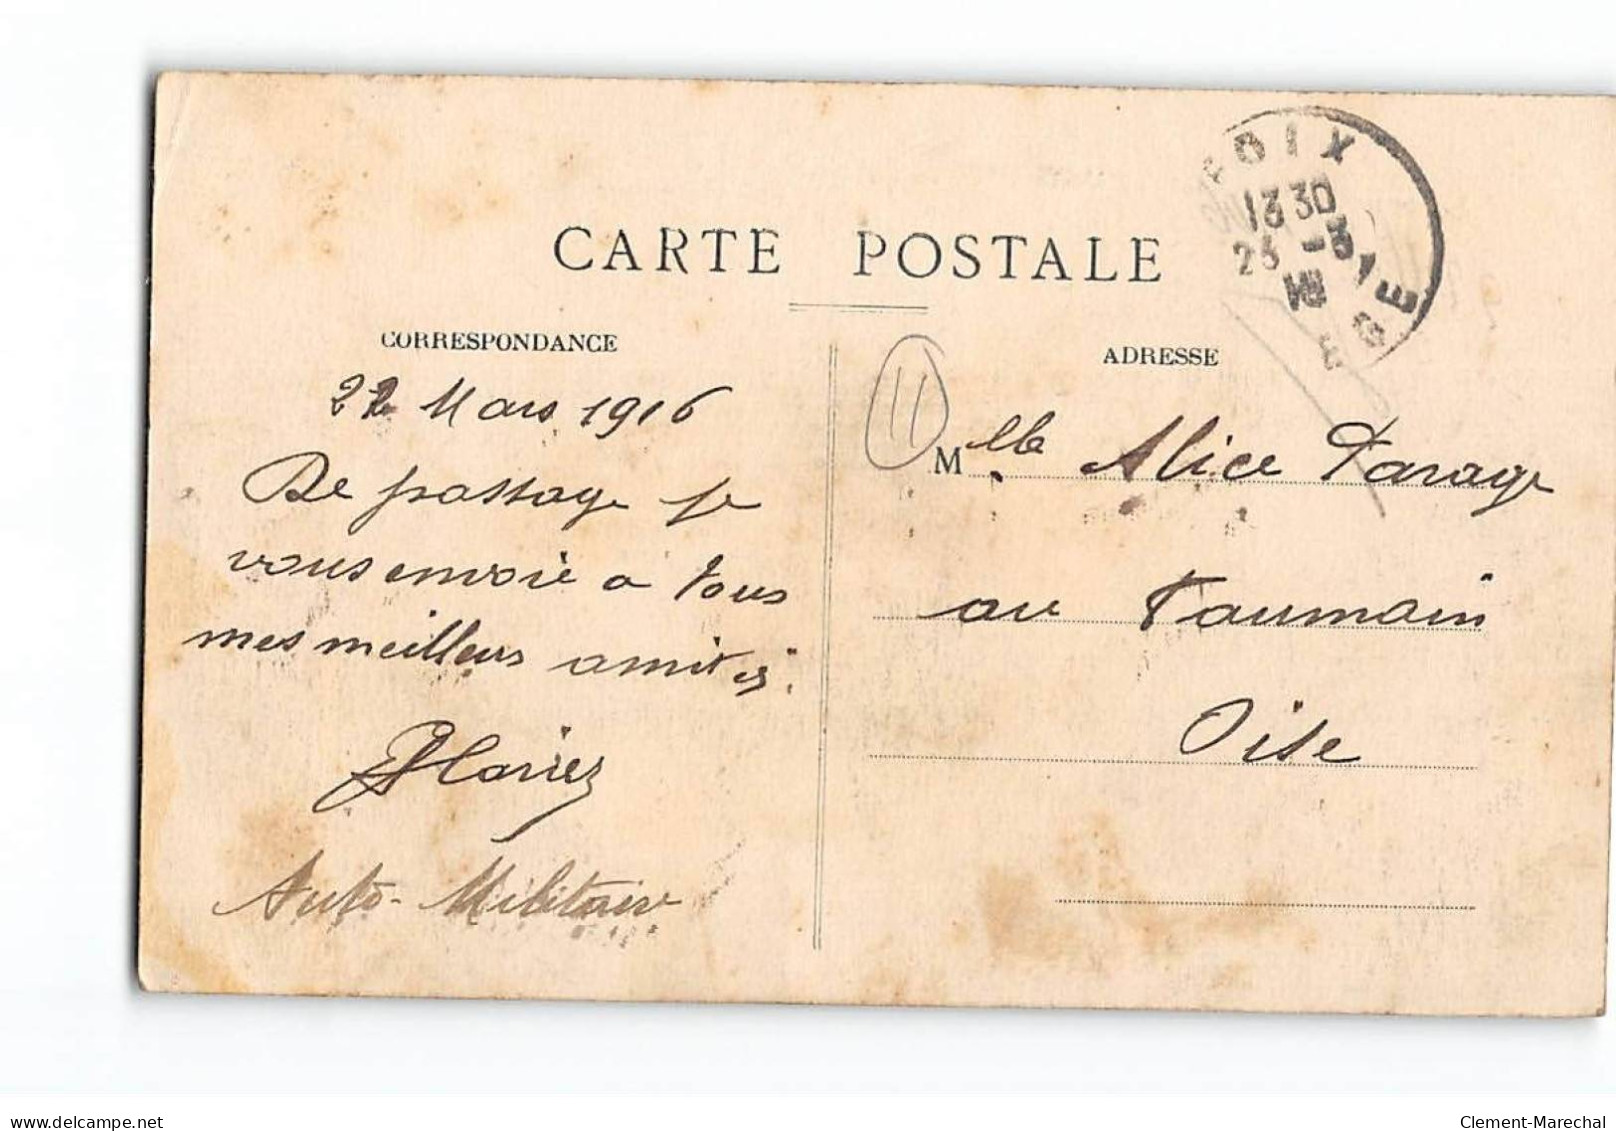 CARTE POSTALE
CORRESPONDANCE
22 Mars 1916
De passage je
vous envoie a tous
mes meilleurs amitiés.
Auto-Militaire
ADRESSE
11
Mlle Alice Parage
au Vaumain
Oise
FOIX
13 30
23 -3
16
ARIEGE
delcampe.net
Clement-Marechal